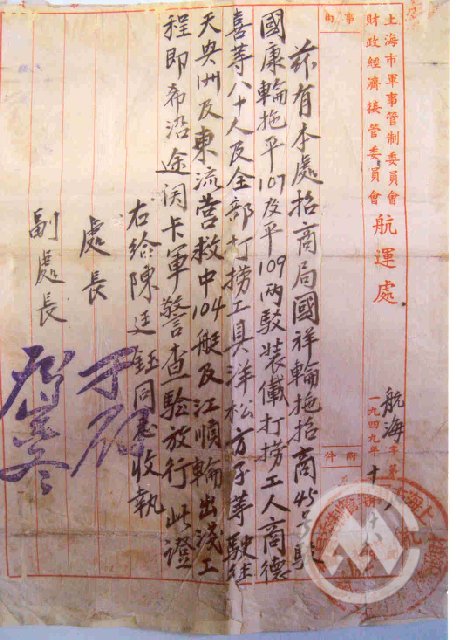 上海市軍事管制委員會
財政經濟接管委員會
航運處
事由
附件
航海字第
一九四九年十
茲有本處招商局國祥輪拖招商 號駁
國康輪拖平107及平109兩駁裝儎打撈工人商德
喜等八十人及全部打撈工具洋松方子等駛往
天央洲及東流营救中104艇及江順輪出淺工
程即希沿途関卡軍警查驗放行此證
右給陳廷鈺同志收執
處長
副處長
于眉